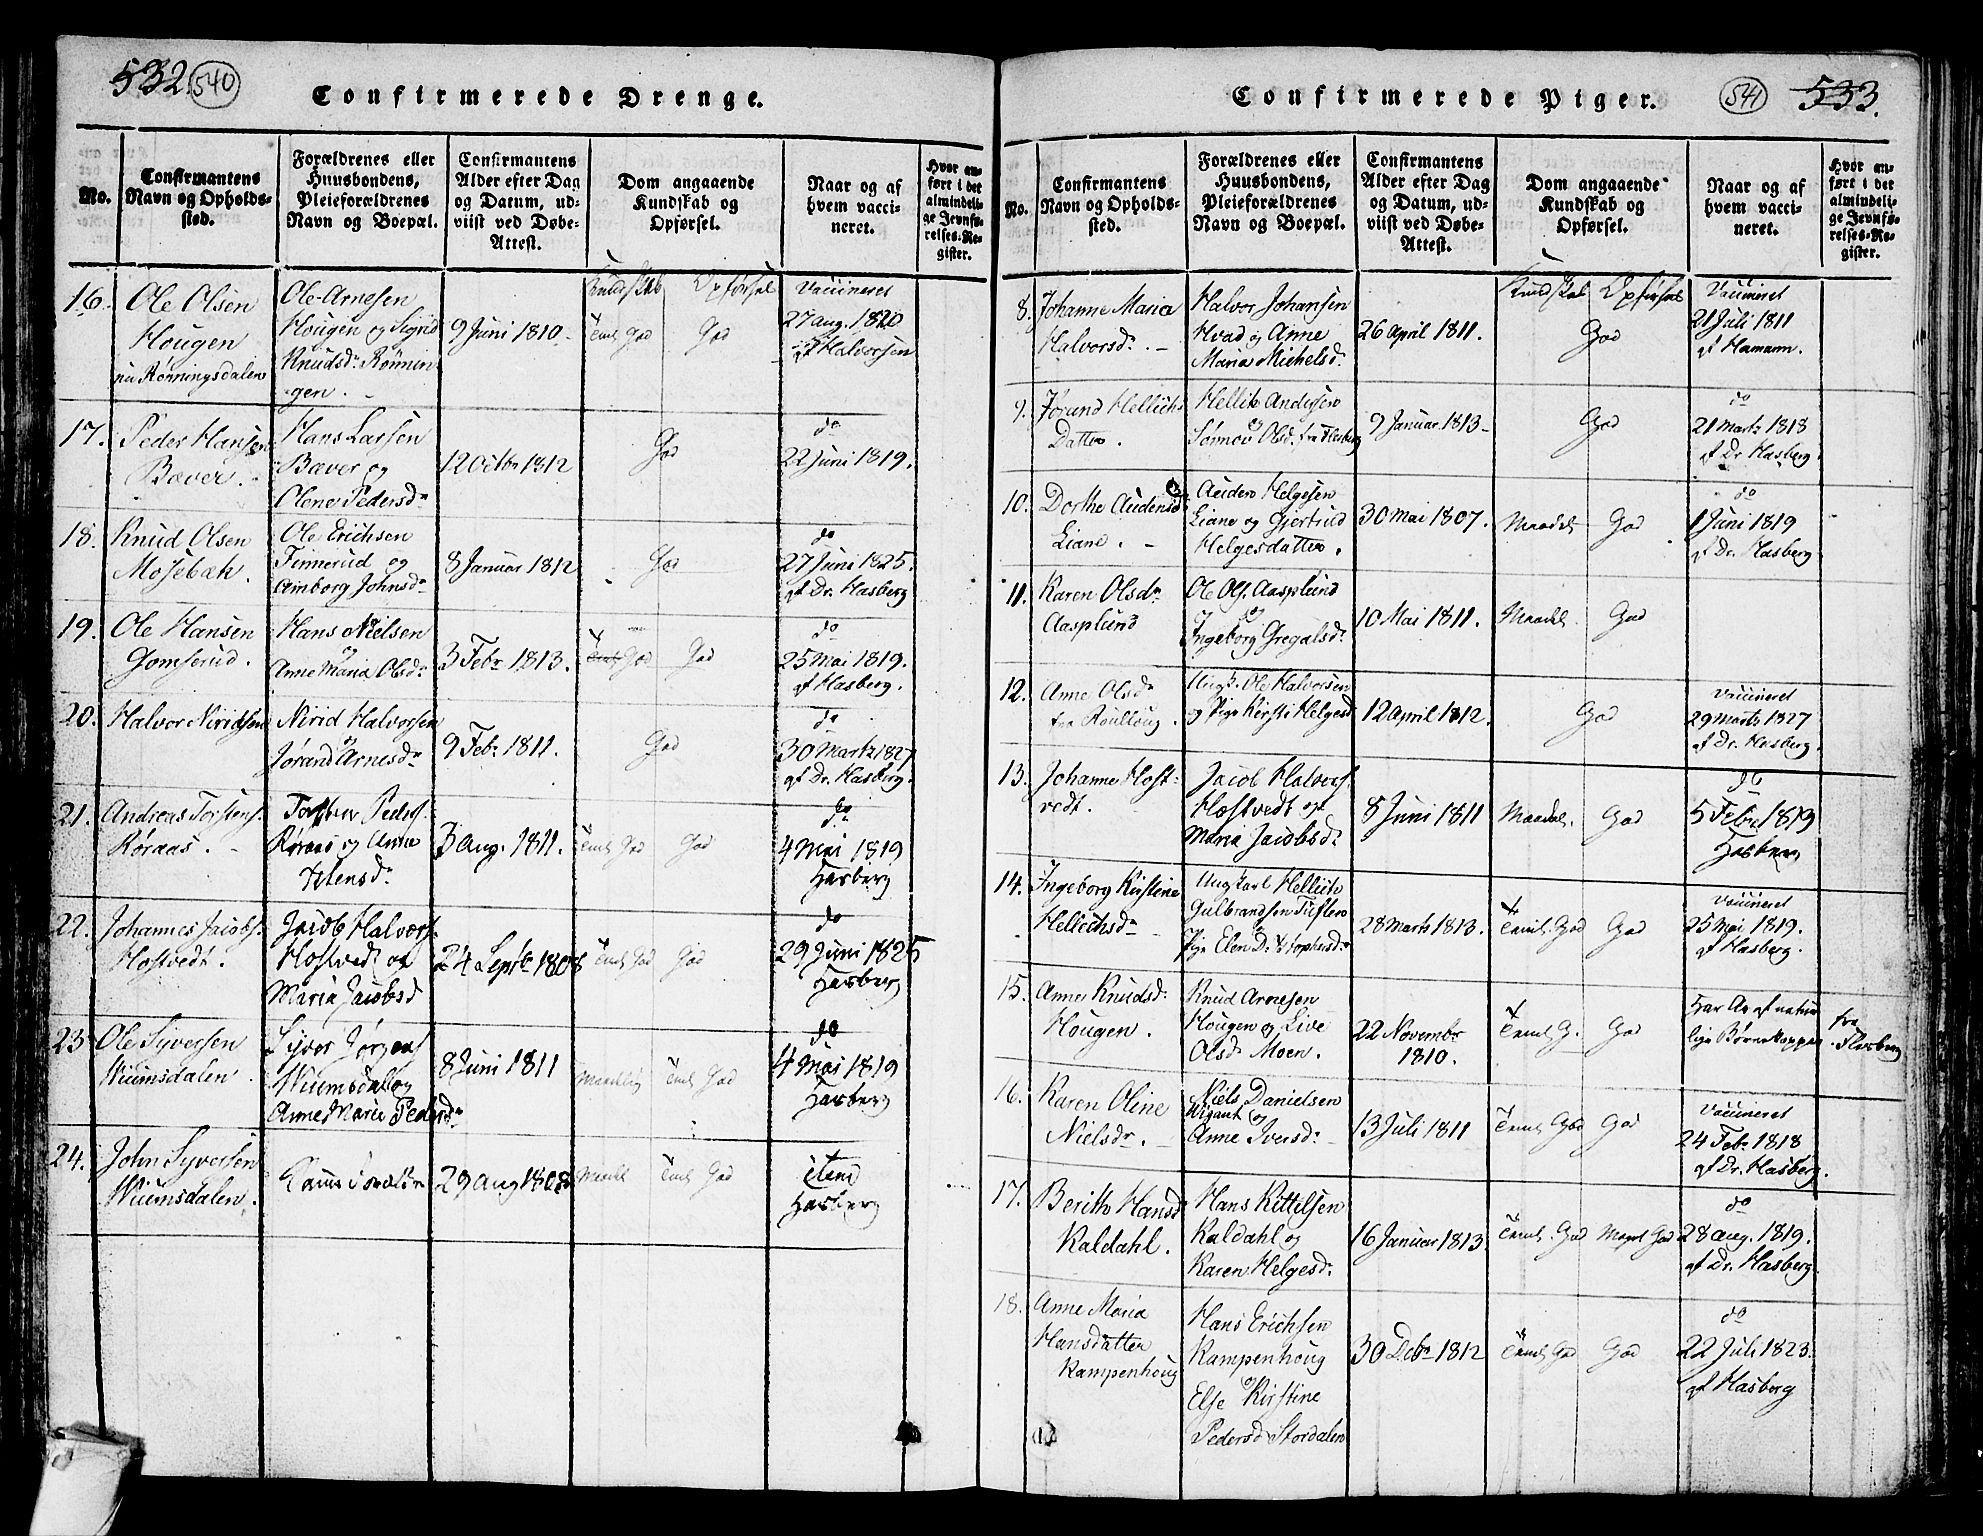 532. 540
Confirmerede Drenge.
No.
Confirmantens
Navn og Opholds-
sted.
Forældrenes eller
Huusbondens,
Pleieforældrenes
Navn og Boepæl.
Confirmantens
Alder efter Dag
og Datum, ud-
viist ved Døbe-
Attest.
Dom angaaende
Kundskab og
Opførsel.
Naar og af
hvem vacci-
neret.
Hvor an-
ført i det
almindeli-
ge Jevnfø-
relses-Re-
gister.
Kundskab Opførsel
16.
Ole Olsen
Hougen
nu Rønningsdalen
Ole Arnesen
Hougen og Sigrid
Knudsdr. Rønnin
gen.
9 Juni 1810.
Teml. God God
Vaccineret
27 aug. 1820
af Halvorsen
17.
Peder Hansen
Bæver.
Hans Larsen
Bæver og
Olene Pedersdr.
12 Octbr 1812
God
do
22 Juni 1819.
18.
Knud Olsen
Mosebæk.
Ole Erichsen
Finnerud og
Amborg Johnsdr.
8 Januar 1812
God
do
27 Juni 1825.
af Dr. Hasberg
19.
Ole Hansen
Gomserud.
Hans Nielsen
og
Anne Maria Olsdr.
3 Febr. 1813.
God God
do
25 Mai 1819.
af Hasberg.
20.
Halvor Niridsen
Nirid Halvorsen
og
Jørand Arnesdr.
9 Febr. 1811.
God
do
30 Marts 1827
af Dr. Hasberg.
21.
Andreas Torstens.
Røraas.
Torsten Peders.
Røraas og Anne
Stensdr.
3 Aug. 1811.
Teml. God God
do
4 Mai 1819
Hasberg
22.
Johannes Jacobs.
Hostvedt.
Jacob Halvors.
Hostvedt og
Maria Jacobsd
24 Septbr 1808
Teml. God God
do
29 Juni 1825
Hasberg
23
Ole Syversen
Wiumsdalen
Syver Jørgens
Wiumsdal og
Anne Marie Pedersdr.
8 Juni 1811
Maadelig Teml. God
do
4 Mai 1819
Hasberg
24.
John Syversen
Wiumsdalen.
Samme Forældre
29 Aug 1808
Maadl Teml. God
item
Hasberg
541 533.
Confirmerede Piger.
No.
Confirmantens
Navn og Opholds-
sted.
Forældrenes eller
Huusbondens,
Pleieforældrenes
Navn og Boepæl.
Confirmantens
Alder efter Dag
og Datum, ud-
viist ved Døbe-
Attest.
Dom angaaende
Kundskab og
Opførsel.
Naar og af
hvem vacci-
neret.
Hvor an-
ført i det
almindeli-
ge Jevnfø-
relses-Re-
gister.
Kundskab Opførsel
8.
Johanne Maria
Halvorsdr.
Halvor Johansen
Hvad og Anne
Maria Michelsd.
26 April 1811.
God
Vaccineret
21 Juli 1811
af Hamann.
9.
Jørund Hellichs
Datter.
Hellik Andersen
og
Sønnov Olsd. fra Flesberg
9 Januar 1813
God
do
21 Marts 1818
af Dr. Hasberg.
10.
Dorthe Audensdr.
Liane.
Auden Helgesen
Liane og Gjertrud
Helgesdatter.
30 Mai 1807.
Maadel. God
do
1 Juni 1819
af Dr. Hasberg
11.
Karen Olsdr.
Aasplund
Ole Ols. Aasplund
og
Ingeborg Gregalsdr.
10 Mai 1811.
Maadel. God
12.
Anne Olsdr.
fra
Ungk. Ole Halvorsen
og Pige Kirsti Helgesd
12 April 1812.
God
Vaccineret
29 Marts 1827
af Dr. Hasberg.
13.
Johanne Host-
vedt.
Jacob Halvors.
Hostvedt og
Maria Jacobsdr.
8 Juni 1811
Maadel. God
do
5 Febr 1819
Hasberg
14.
Ingeborg Kirstine
Hellichsdr.
Ungkarl Hellich
Gulbrandsen Tufte
Pige Elen D. Christophersdr.
28 Marts 1813.
Teml. God God
Vaccineret
25 Mai 1819.
af Hasberg.
15.
Anne Knudsd.
Hougen.
Knud Arnesen
Hougen og Live
Olsdr. Moen.
22 Novembr
1810.
Teml. G. God
har Ar af natur
lige Børnekopper
fra
Flesberg
16.
Karen Oline
Nielsdr.
Niels Danielsen
Wigant og
Anne Iversdr.
13 Juli 1811
Teml. God God
Vaccineret
24 Febr. 1818
af Dr. Hasberg.
17.
Berith Hansd
Kaldahl.
Hans Kittilsen
Kaldahl og
Karen Helgesd.
16 Januar 1813.
Teml. God Meget God
do
28 aug. 1819.
af Dr. Hasberg.
18.
Anne Maria
Hansdatter
Kampenhoug
Hans Erichsen
Kampenhoug
og
Else Kirstine
Pedersd Stordalen
30 Decbr 1812
Teml. God God
do
22 Juli 1823.
af Hasberg